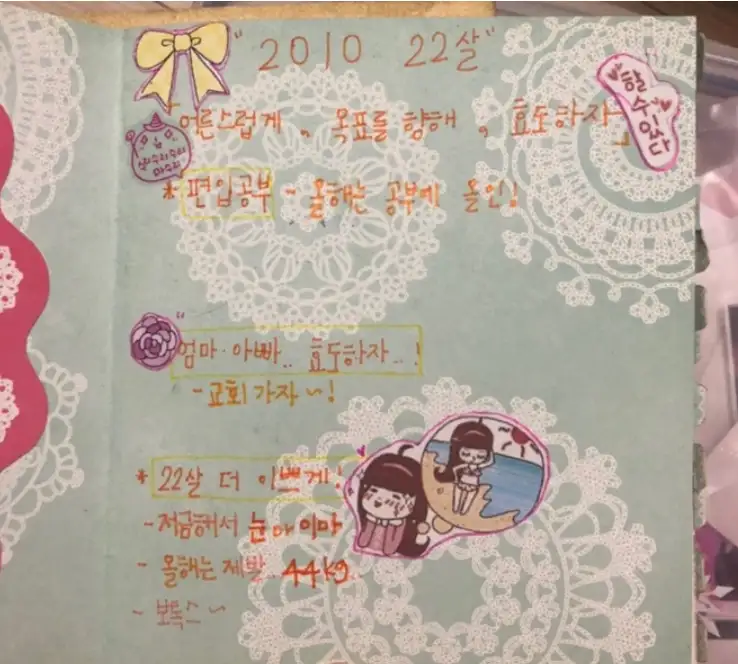 "2010 22살"
할 수 있다
「어른스럽게, 목표를 향해, 효도하자~」
수리수리
마수리
* 편입공부 - 올해는 공부에 올인!
"엄마·아빠.. 효도하자..!
- 교회 가자~!
* 22살 더 이쁘게!
- 저금해서 눈 이마
- 올해는 제발.. 44kg..
- 보톡스~